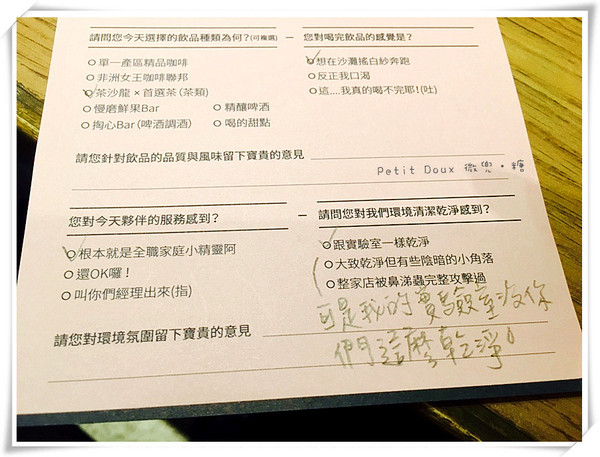 請問您今天選擇的飲品種類為何?(可複選)
單一產區精品咖啡
非洲女王咖啡聯邦
茶沙龍×首選茶(茶類)
慢磨鮮果Bar
精釀啤酒
掏心Bar(啤酒調酒)
喝的甜點
您對喝完飲品的感覺是?
想在沙灘搖白紗奔跑
反正我口渴
這....我真的喝不完耶!(吐)
請您針對飲品的品質與風味留下寶貴的意見
Petit Doux 微兜。糖
您對今天夥伴的服務感到?
根本就是全職家庭小精靈阿
還OK囉!
叫你們經理出來(指)
請問您對我們環境清潔乾淨感到?
跟實驗室一樣乾淨
大致乾淨但有些陰暗的小角落
整家店被鼻涕蟲完整攻擊過
請您對環境氛圍留下寶貴的意見
可是我的實驗室沒你
們這麼乾淨!